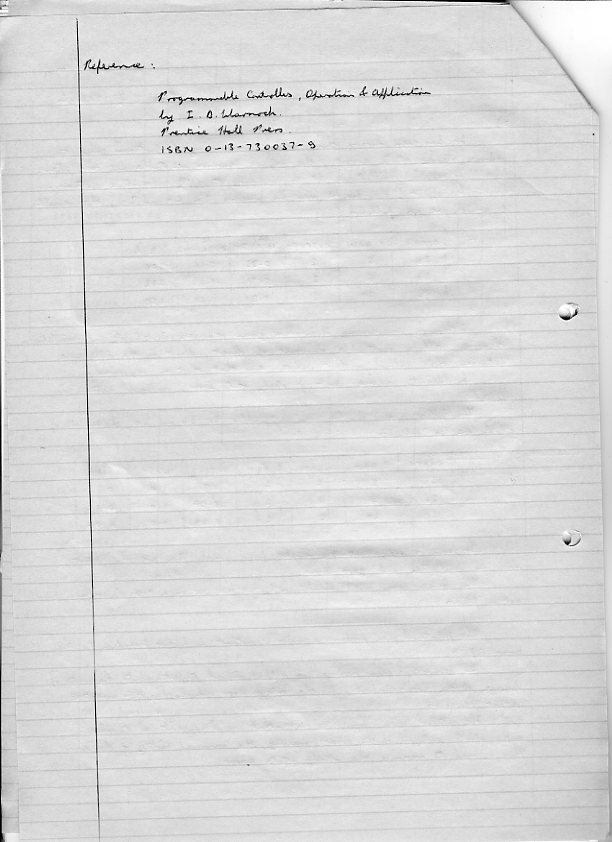 Reference :
Programmable Controllers, Operation & Application
by I. G. Warnock.
Prentice Hall Press.
ISBN 0-13-730037-9